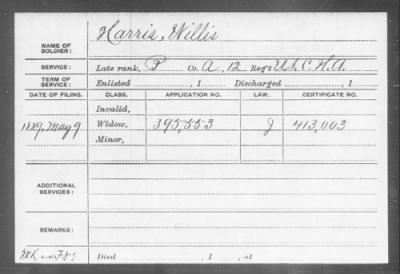 NAME OF SOLDIER: Harris, Willis
SERVICE: Late rank, P Co. A, 12 Reg't U.S.C.H.A.
TERM OF SERVICE: Enlisted , 1 Discharged , 1
DATE OF FILING. CLASS. APPLICATION NO. LAW. CERTIFICATE NO.
Invalid,
1889, May 9 Widow, 395,553 J 413,003
Minor,
ADDITIONAL SERVICES:
REMARKS:
Died , 1 , at